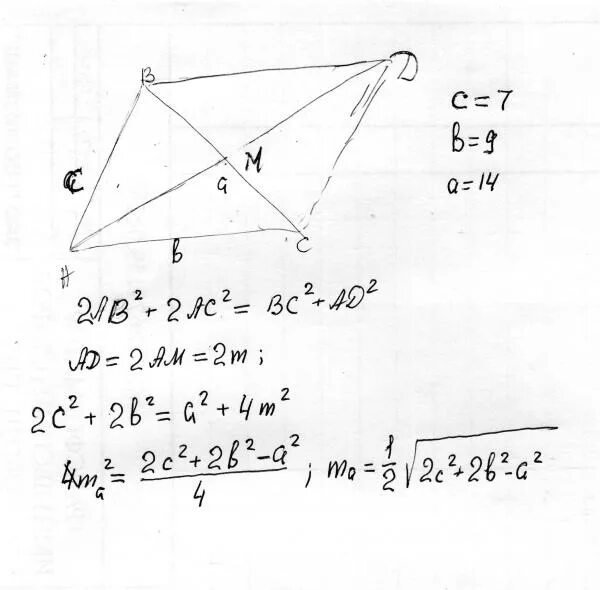 B
D
c = 7
M
C
b = 9
a
a = 14
b
C
A
2AB² + 2AC² = BC² + AD²
AD = 2AM = 2m ;
2c² + 2b² = a² + 4m²
4mₐ² = (2c² + 2b² - a²)/4 ; mₐ = 1/2 √(2c² + 2b² - a²)